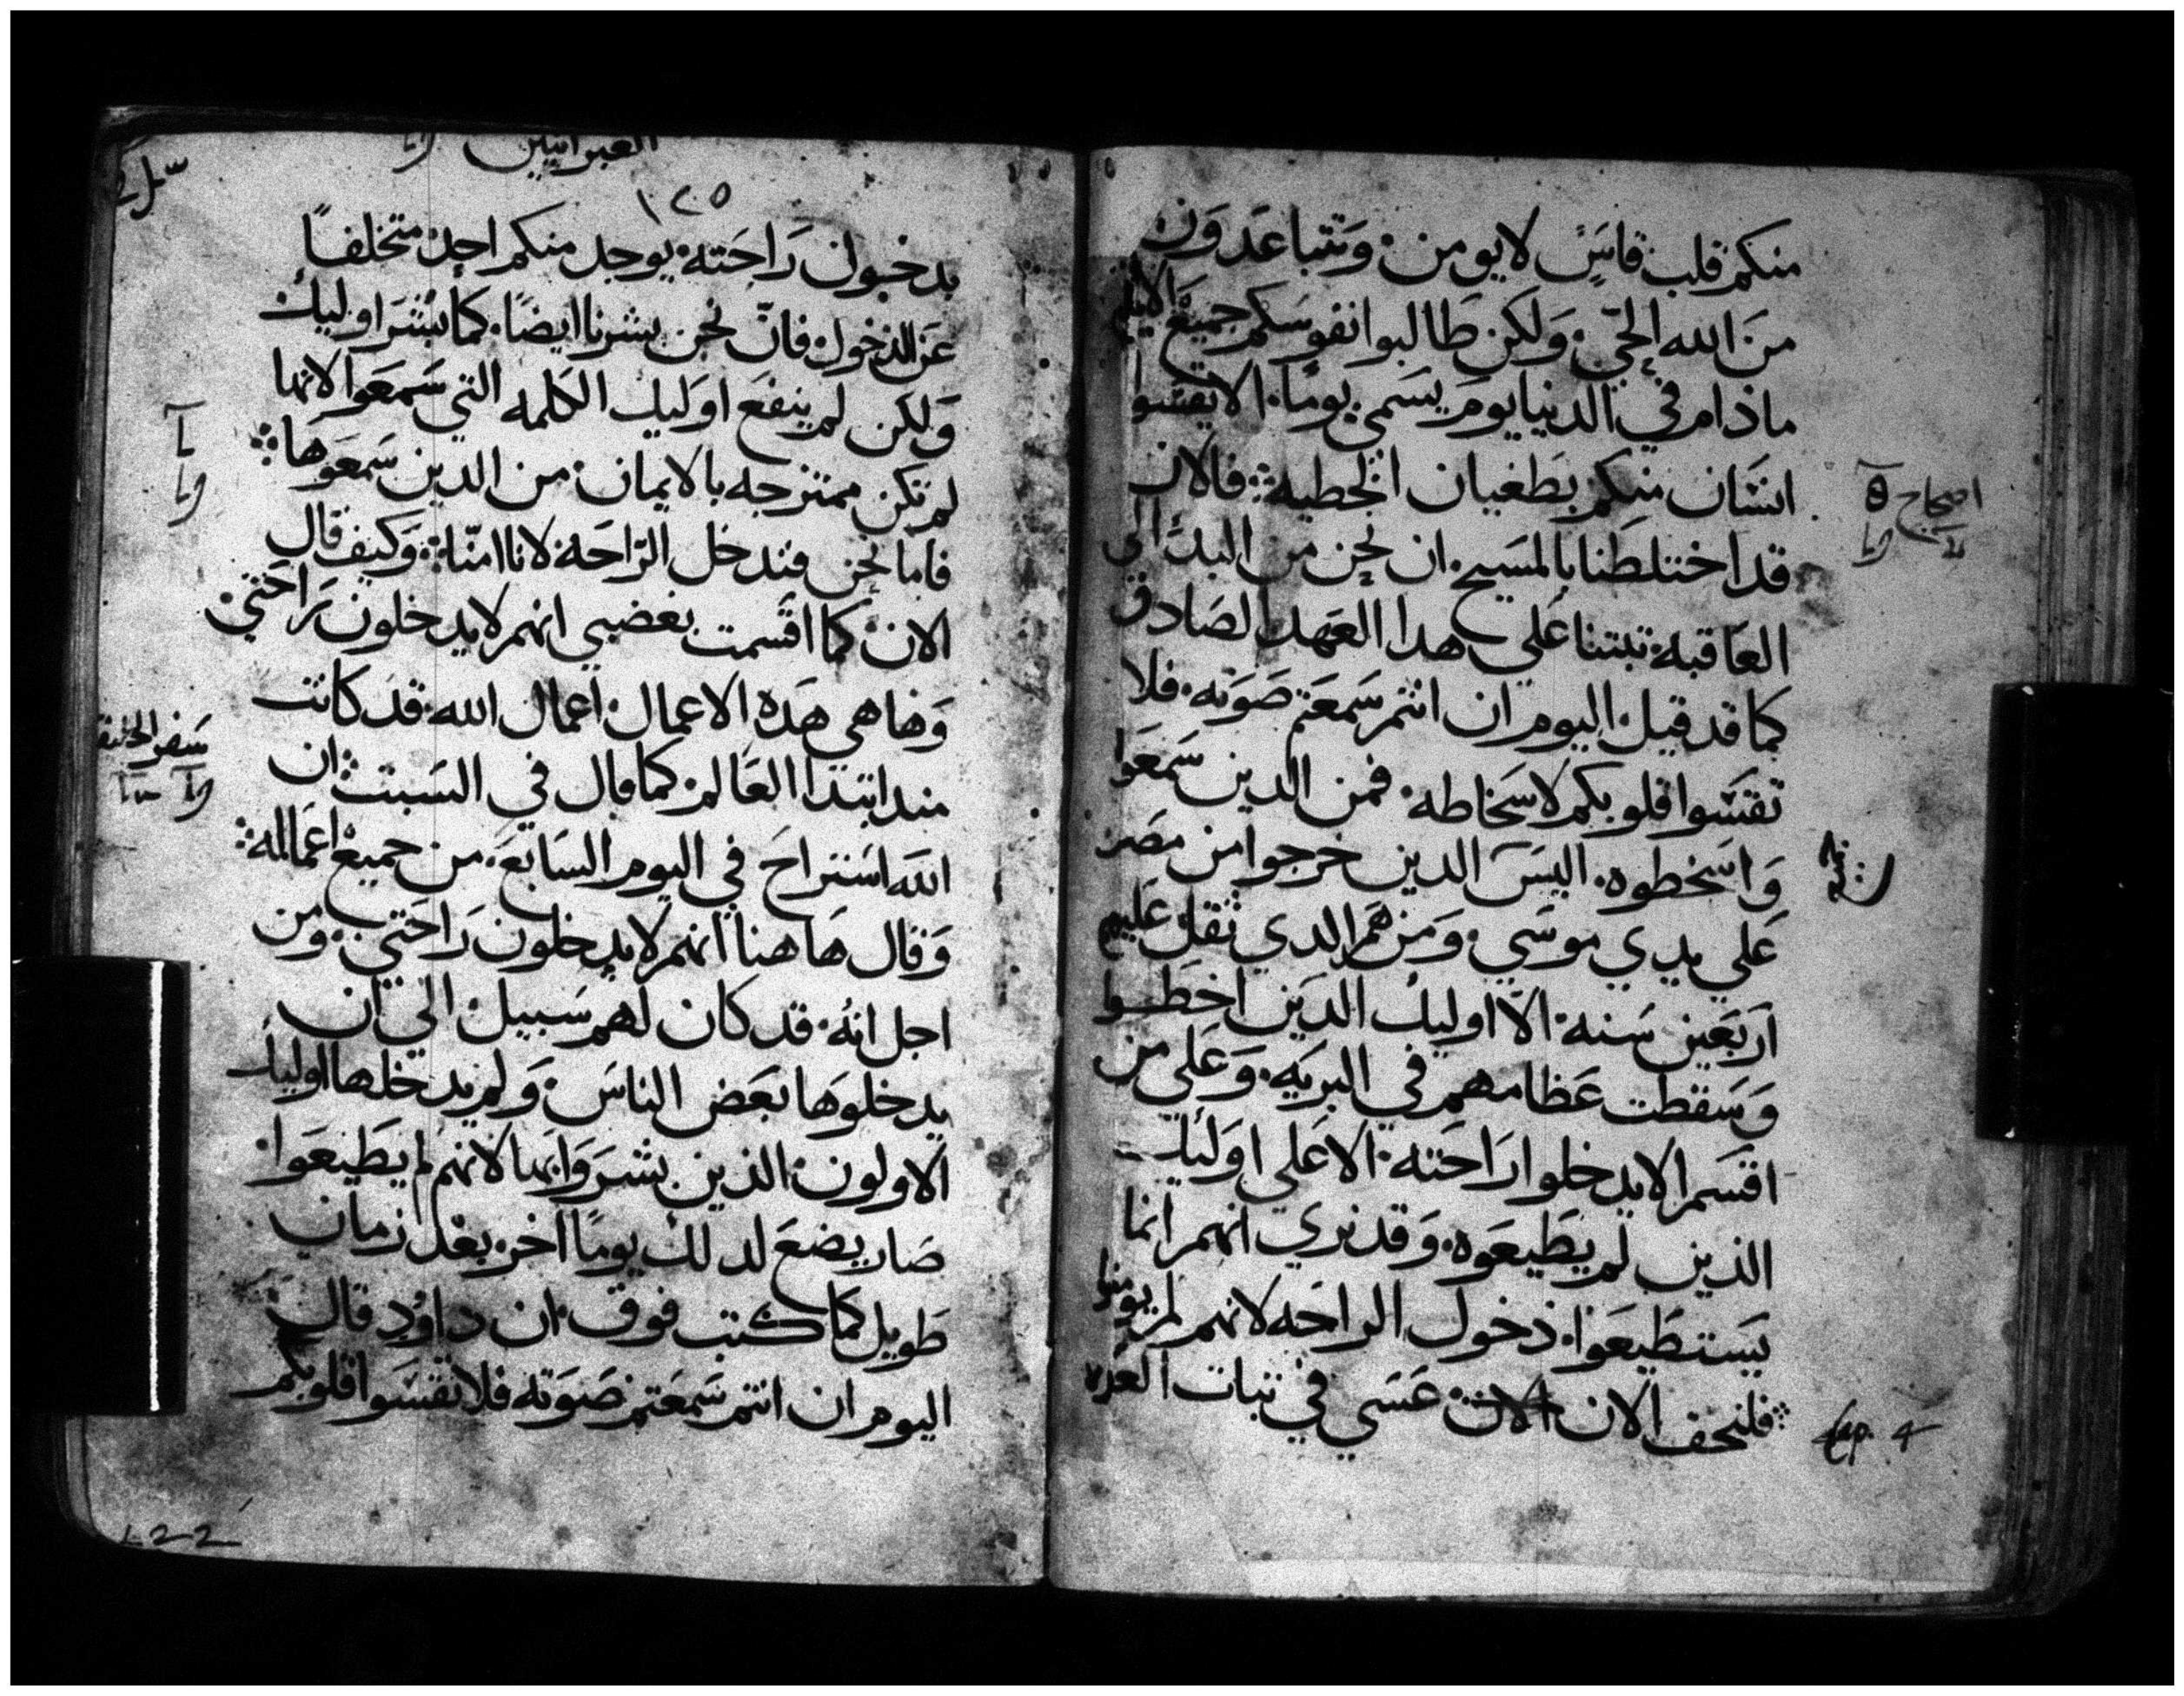 منكم قلب قاسٍ لا يومن وتتباعدون
من الله الحي ولكن طالبوا نفوسكم جميع الايام
ماذام في الدنيا يوم يسمي يومًا الا يقسوا
انسان منكم بطغيان الخطيه فالان
قد اختلطنا بالمسيح ان نحن من البدء الي
العاقبه ثبتنا علي هدا العهد الصادق
كما قد قيل اليوم ان انتم سمعتم صوته فلا
تقسوا قلوبكم لاسخاطه فمن الدين سمعوا
واسخطوه اليس الدين خرجوا من مصر
علي يدي موسي ومن هم الدي ثقل عليهم
اربعين سنه الا اوليك الدين اخطوا
وسقطت عظامهم في البريه وعلي من
اقسم الا يدخلوا راحته الا علي اوليك
الذين لم يطيعوه وقد نري انهم انما
يستطيعوا ذخول الراحه لانهم لم يومنوا
فلنخف الان الان عسي في ثبات العده
اصحاح ٥
Cap. 4
العبرانيين
١٢٥
يدخبون راحته يوجد منكم احد متخلفًا
عن الدخول فان نحن بشرنا ايضًا كما بشر اوليك
ولكن لم ينفع اوليك الكلمه التي سمعوا لانها
لم تكن ممتزجه بالايمان من الدين سمعوها
فاما نحن فندخل الراحه لانا امنا وكيف قال
الان كما اقسمت بغضبي انهم لا يدخلون راحتي
وها هي هده الاعمال اعمال الله قد كانت
مند ابتدا العالم كما قال في السبت ان
الله استراح في اليوم السابع من جميع اعماله
وقال هاهنا انهم لا يدخلون راحتي ومن
اجل انه قد كان لهم سبيل الي ان
يدخلوها بعض الناس ولم يدخلها اوليك
الاولون الذين بشروا بها لانهم لم يطيعوا
صار يضع لدلك يومًا اخر بعد زمان
طويل كما كتب فوق ان داوُد قال
اليوم ان انتم سمعتم صوته فلا تقسوا قلوبكم
سفر الخليقه
122